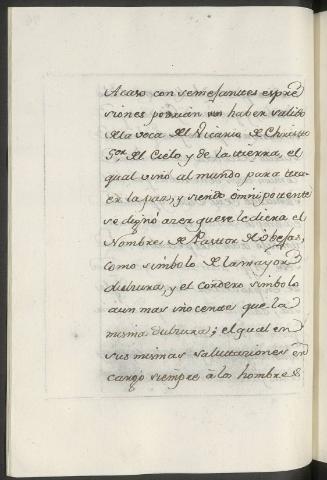 Acaso con semejantes espre
siones podrian haber salido
de la voca del Vicario de Christo
Sor. del Cielo y de la tierra, el
qual vino al mundo para tra
er la paz, y siendo omnipotente
se dignó azer que se le diera el
Nombre de Pastor de obejas,
como simbolo de la mayor
dulzura, y el cordero simbolo
aun mas ynocente que la
misma dulzura; el qual en
sus mismas salutaciones en
cargó siempre à los hombres